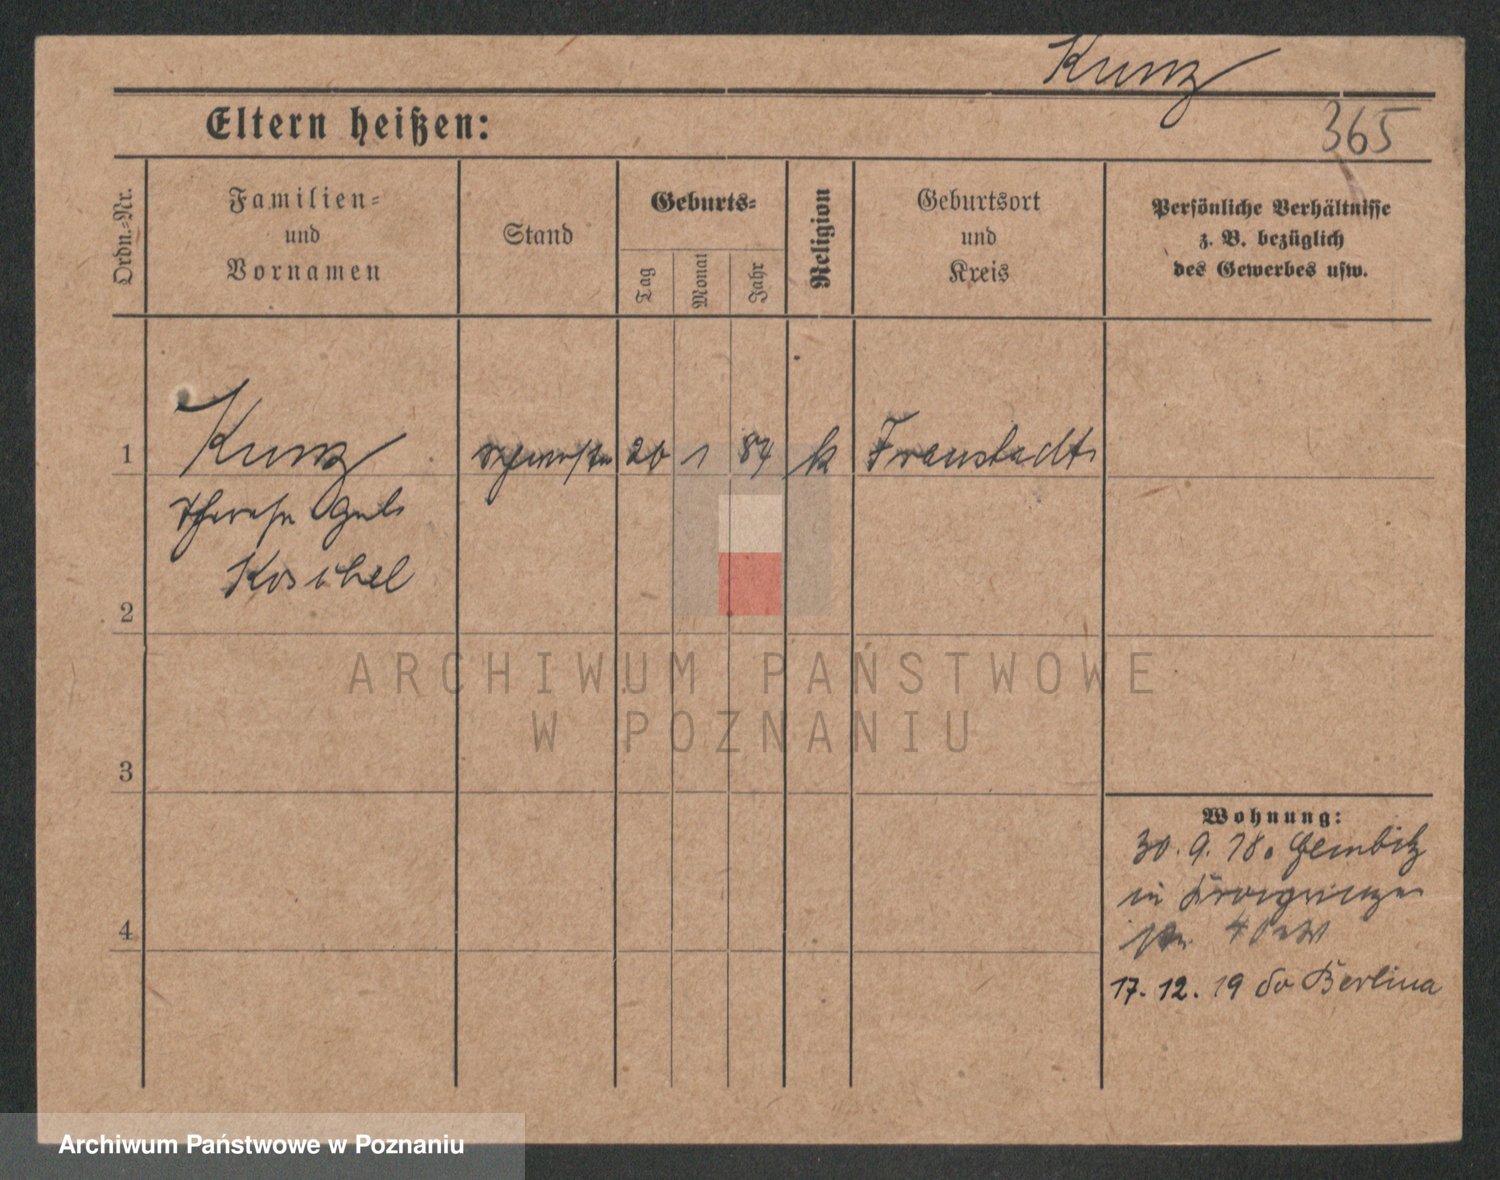 Kunz
Eltern heißen:
365
Ordn.-Nr.
Familien-
und
Vornamen
Stand
Geburts-
Tag
Monat
Jahr
Religion
Geburtsort
und
Kreis
Persönliche Verhältnisse
z. B. bezüglich
des Gewerbes usw.
1
Kunz
20
1
84
k
Fraustadt
Therese geb.
Koschel
2
ARCHIWUM PAŃSTWOWE
W POZNANIU
3
Wohnung:
30. 9. 18. Gembitz
in
4
17. 12. 19 do Berlina
Archiwum Państwowe w Poznaniu